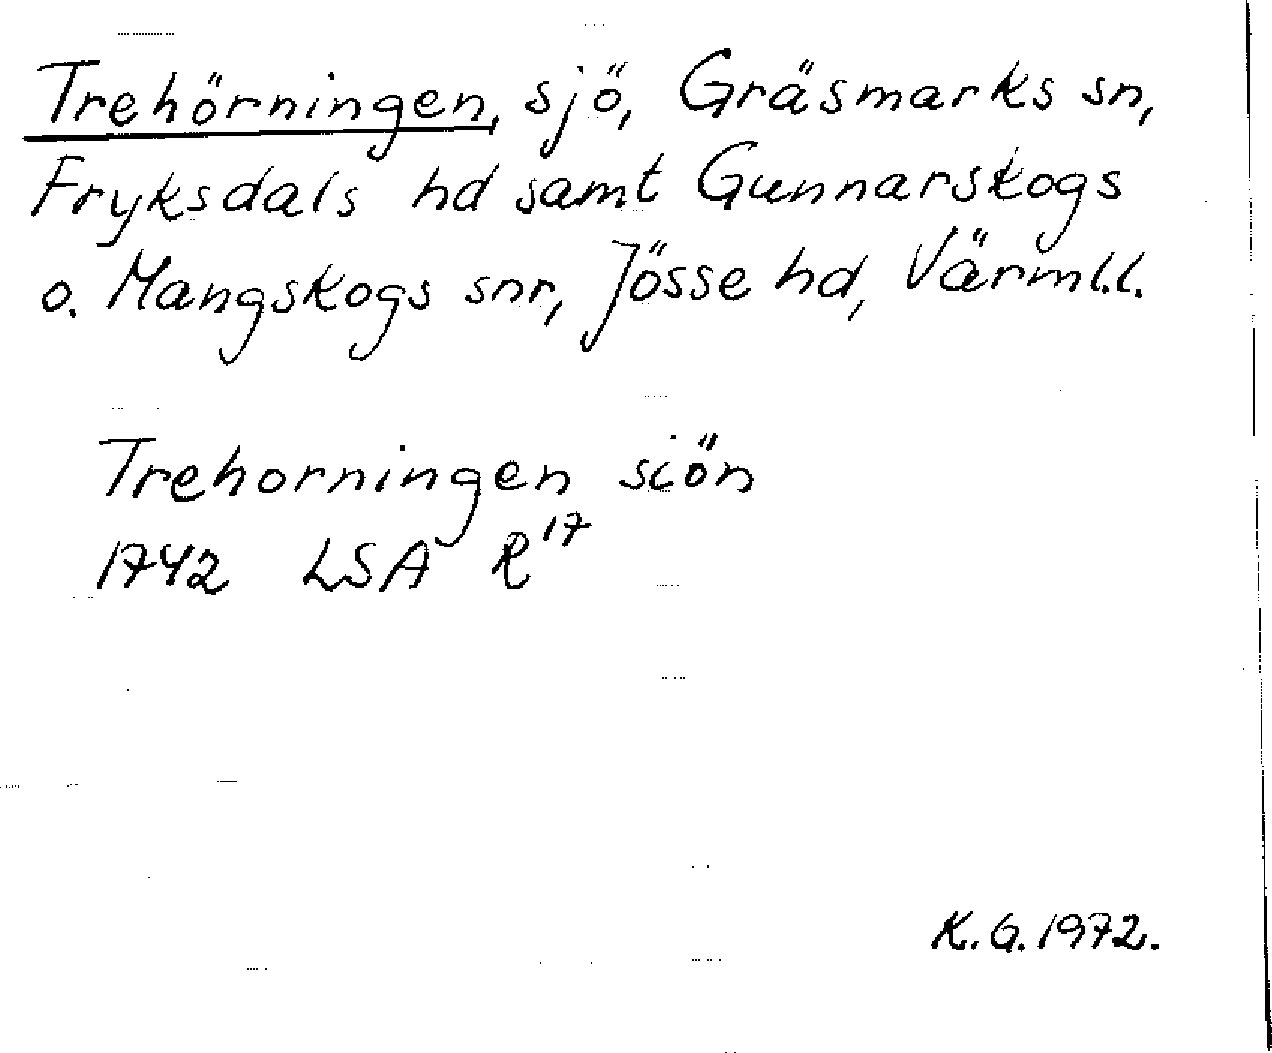 Trehörningen, sjö, Gräsmarks sn,
Fryksdals hd samt Gunnarskogs
o. Mangskogs snr, Jösse hd, Värml.l.
Trehorningen siön
1742 LSA R¹⁷
K.G. 1972.